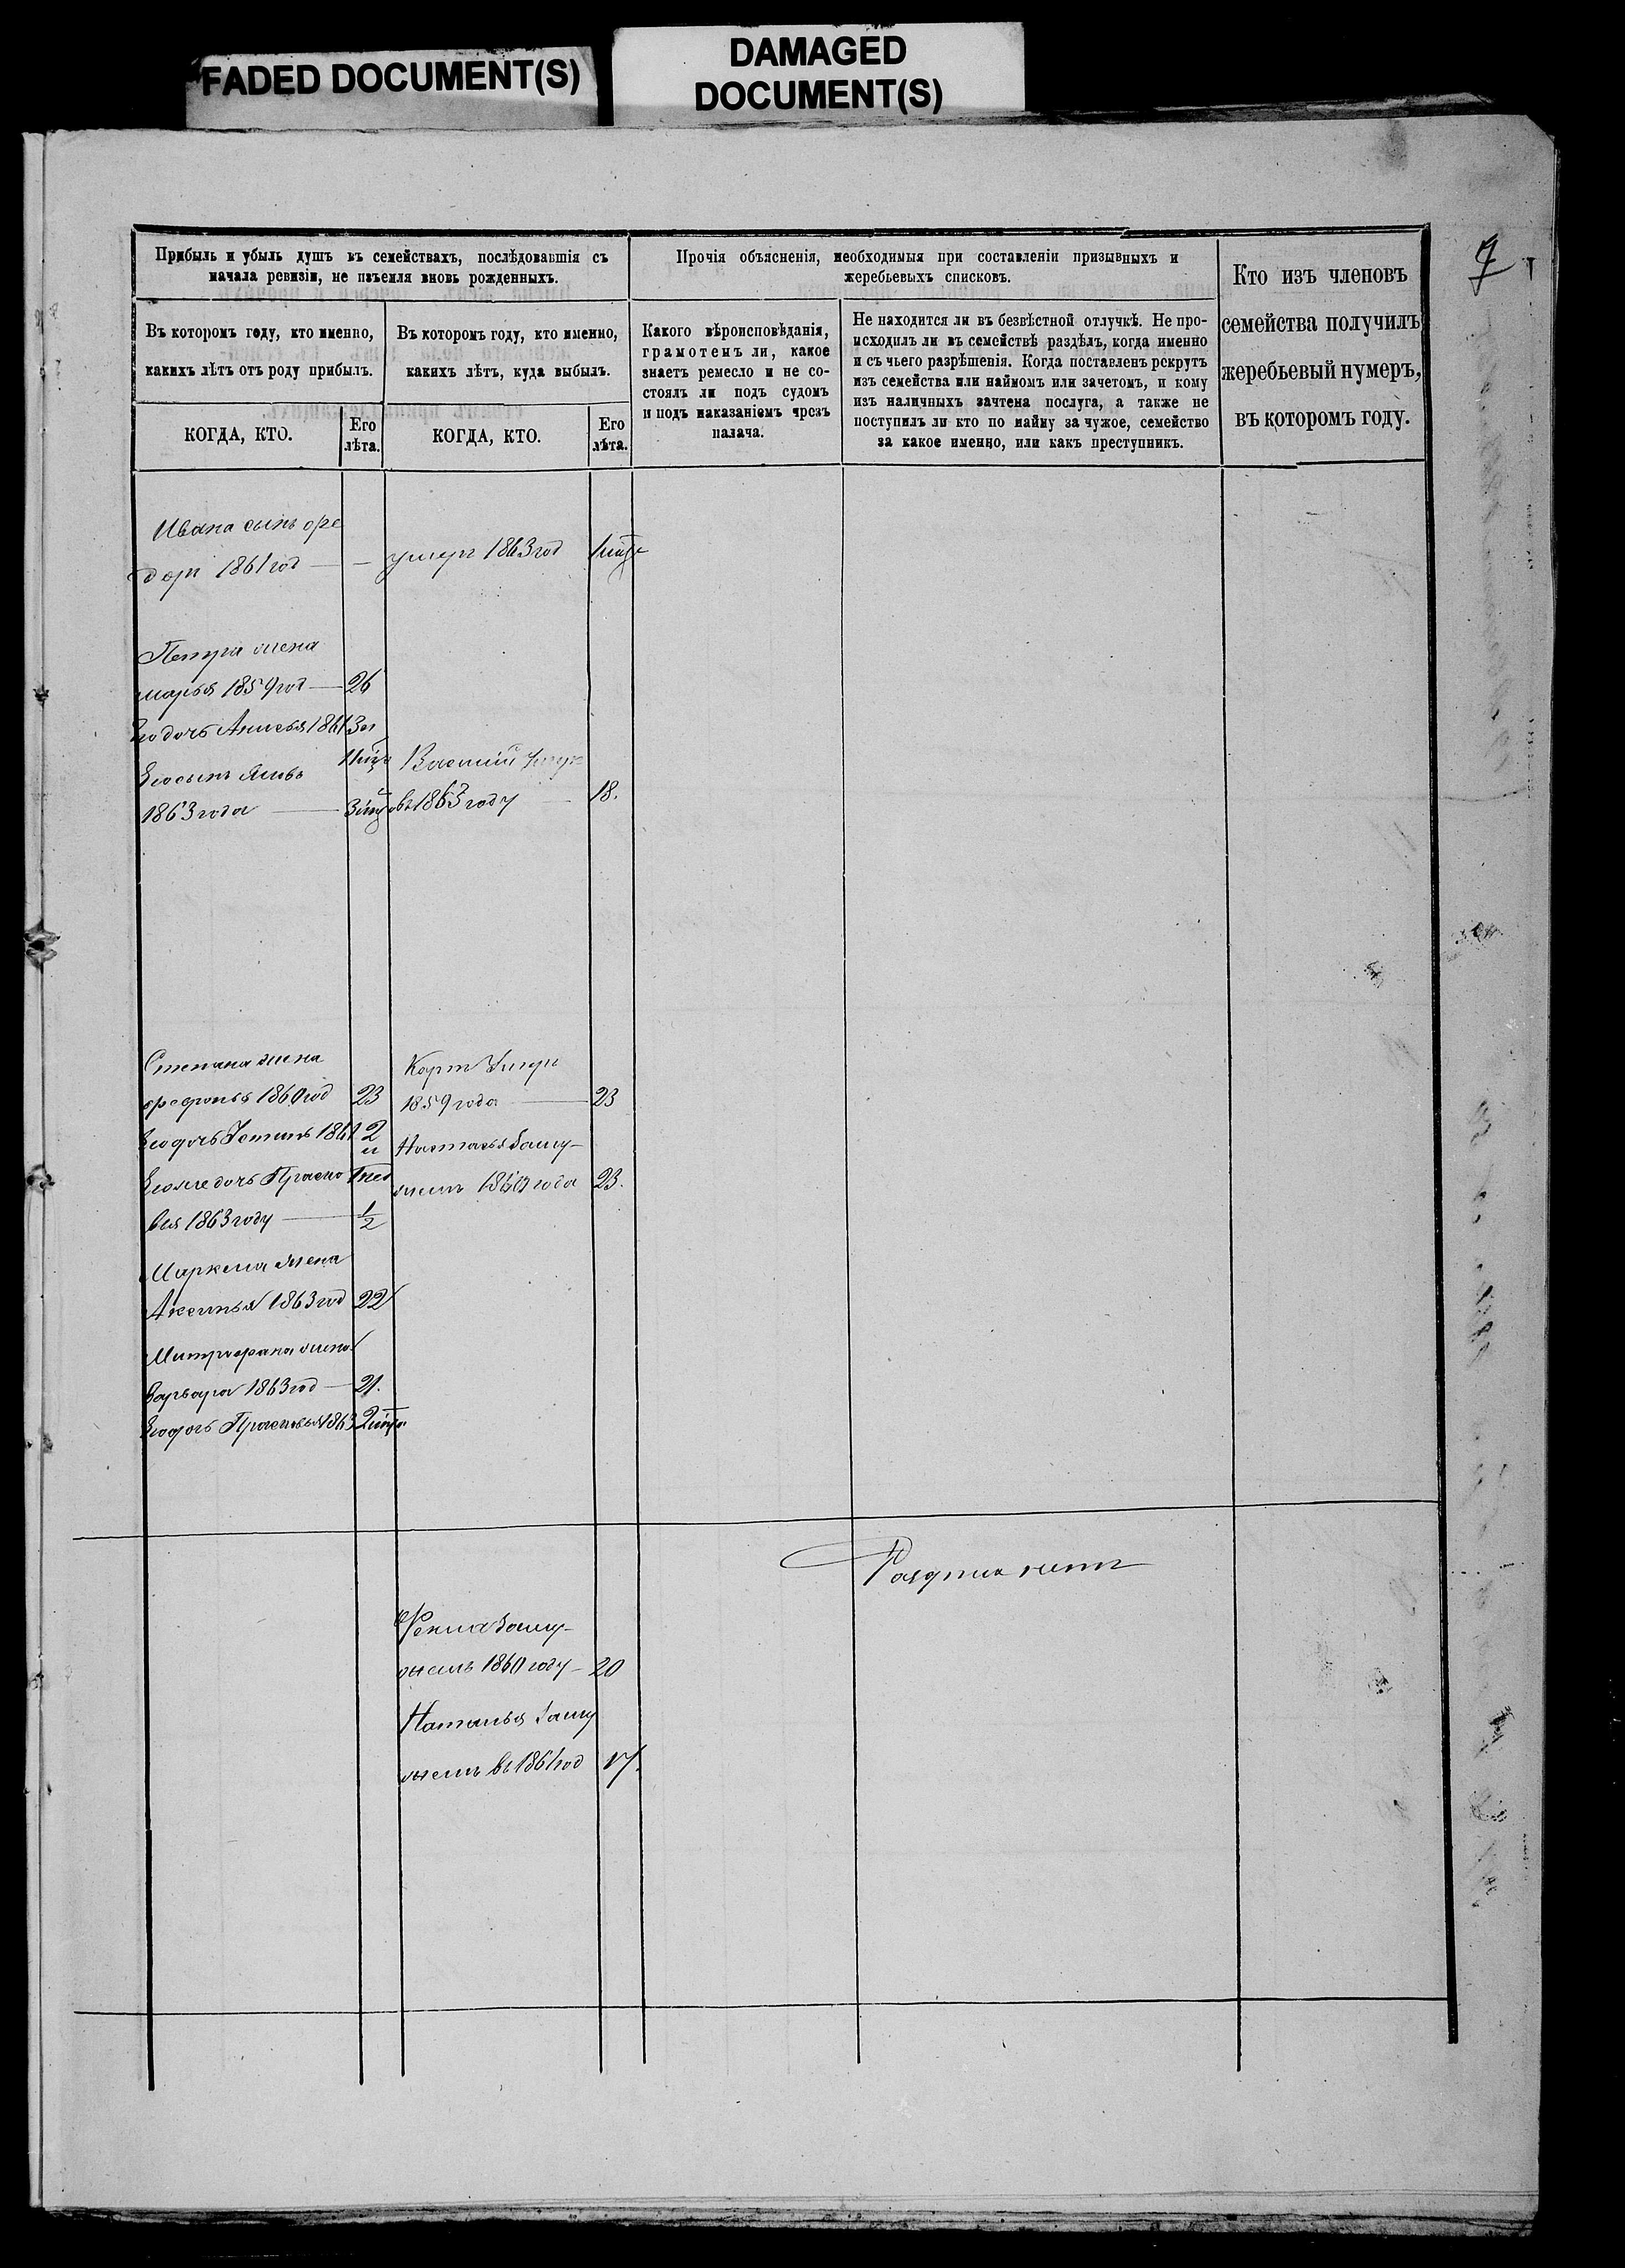 FADED DOCUMENT(S)
DAMAGED
DOCUMENT(S)
7
Прибыль и убыль душъ въ семействахъ, послѣдовавшія съ
начала ревизіи, не изъемля вновь рожденныхъ.
Въ которомъ году, кто именно,
какихъ лѣтъ отъ роду прибылъ.
КОГДА, КТО.
Его
лѣта.
Въ которомъ году, кто именно,
какихъ лѣтъ, куда выбылъ.
КОГДА, КТО.
Его
лѣта.
Прочія объясненія, необходимыя при составленіи призывныхъ и
жеребьевыхъ списковъ.
Какого вѣроисповѣданія,
грамотенъ ли, какое
знаетъ ремесло и не со-
стоялъ ли подъ судомъ
и подъ наказаніемъ чрезъ
палача.
Не находится ли въ безвѣстной отлучкѣ. Не про-
исходилъ ли въ семействѣ раздѣлъ, когда именно
и съ чьего разрѣшенія. Когда поставленъ рекрутъ
изъ семейства или наймомъ или зачетомъ, и кому
изъ наличныхъ зачтена послуга, а также не
поступилъ ли кто по найму за чужое, семейство
за какое именно, или какъ преступникъ.
Кто изъ членовъ
семейства получилъ
жеребьевый нумеръ,
въ которомъ году.
Ивана сынъ Фе
доръ 1861 год — — умеръ 1863 год
Петра жена
марья 1859 год — 26
Его дочь 1861
Его сынъ Василий умер
1863 года — въ 1863 году — 18.
Степана жена Умеръ
1860 год 23 1859 года — 23
Его дочь 1861 2 Настасья Заму-
Его же дочь Праско жемъ года 23.
вья 1863 году — 1/2
Маркела жена
Аксинья 1863 год 22
Митрофана жена
Варвара 1863 год — 21.
Его дочь Прасковья 1863 2
нетъ
Фекла Заму-
жемъ 1860 году — 20
Наталья Заму
жемъ въ 1861 год 17.